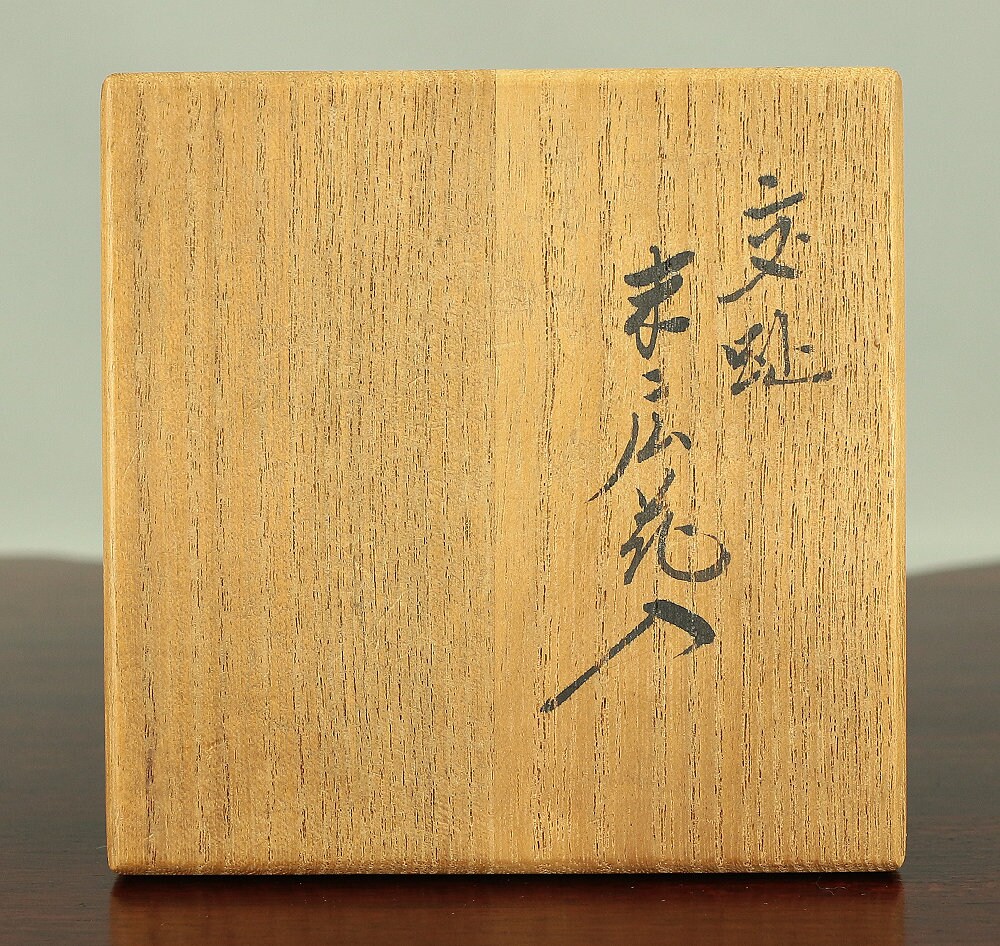 交趾
末広花入